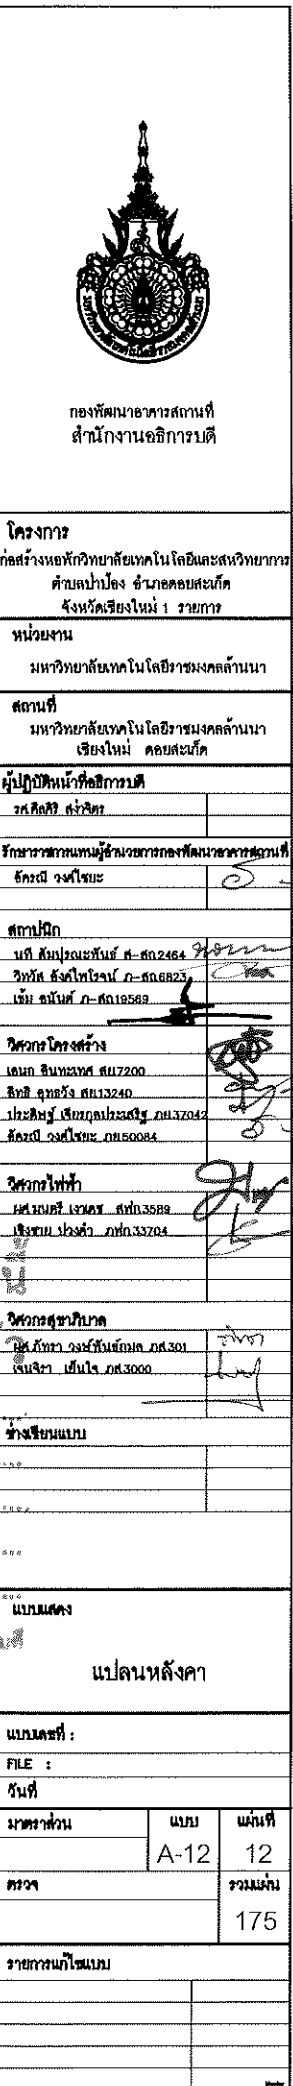 กองพัฒนาอาคารสถานที่
สำนักงานอธิการบดี
โครงการ
ก่อสร้างหอพักวิทยาลัยเทคโนโลยีและสหวิทยาการ
ตำบลป่าป้อง อำเภอดอยสะเก็ด
จังหวัดเชียงใหม่ 1 รายการ
หน่วยงาน
มหาวิทยาลัยเทคโนโลยีราชมงคลล้านนา
สถานที่
มหาวิทยาลัยเทคโนโลยีราชมงคลล้านนา
เชียงใหม่ ดอยสะเก็ด
ผู้ปฏิบัติหน้าที่อธิการบดี
รศ.ศีลศิริ สง่าจิตร
รักษาราชการแทนผู้อำนวยการกองพัฒนาอาคารสถานที่
อัครณี วงศ์ไชยะ
สถาปนิก
นที สัมปุรณะพันธ์ ส-สถ2464
วิทวัส อังค์ไพโรจน์ ภ-สถ6823
เข้ม ธนันต์ ภ-สถ19569
วิศวกรโครงสร้าง
เอนก สินทะเทศ สย7200
สิทธิ สุทธวัง สย13240
ประดิษฐ์ เจียรกุลประเสริฐ ภย37042
อัครณี วงศ์ไชยะ ภย50084
วิศวกรไฟฟ้า
ผศ.มนตรี เงาเดช สฟก3589
เชิงชาย ปวงคำ ภฟก33704
วิศวกรสุขาภิบาล
ผศ.ภัทรา วงษ์พันธ์กมล ภส301
เจนจิรา เย็นใจ ภส3000
ช่างเขียนแบบ
แบบแสดง
แปลนหลังคา
แบบเลขที่ :
FILE :
วันที่
มาตราส่วน แบบ แผ่นที่
A-12 12
ตรวจ รวมแผ่น
175
รายการแก้ไขแบบ